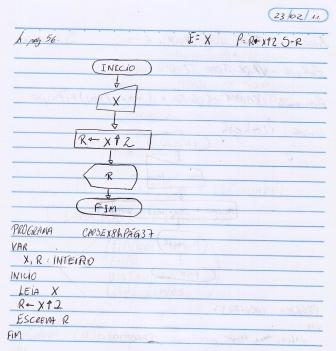 23/02/11
A. pag 56. E= X P=R←X↑2 S-R
INICIO
X
R← X↑2
R
FIM
PROGRAMA CAP3EX8APÁG37
VAR
X, R : INTEIRO
INICIO
LEIA X
R← X↑2
ESCREVA R
FIM